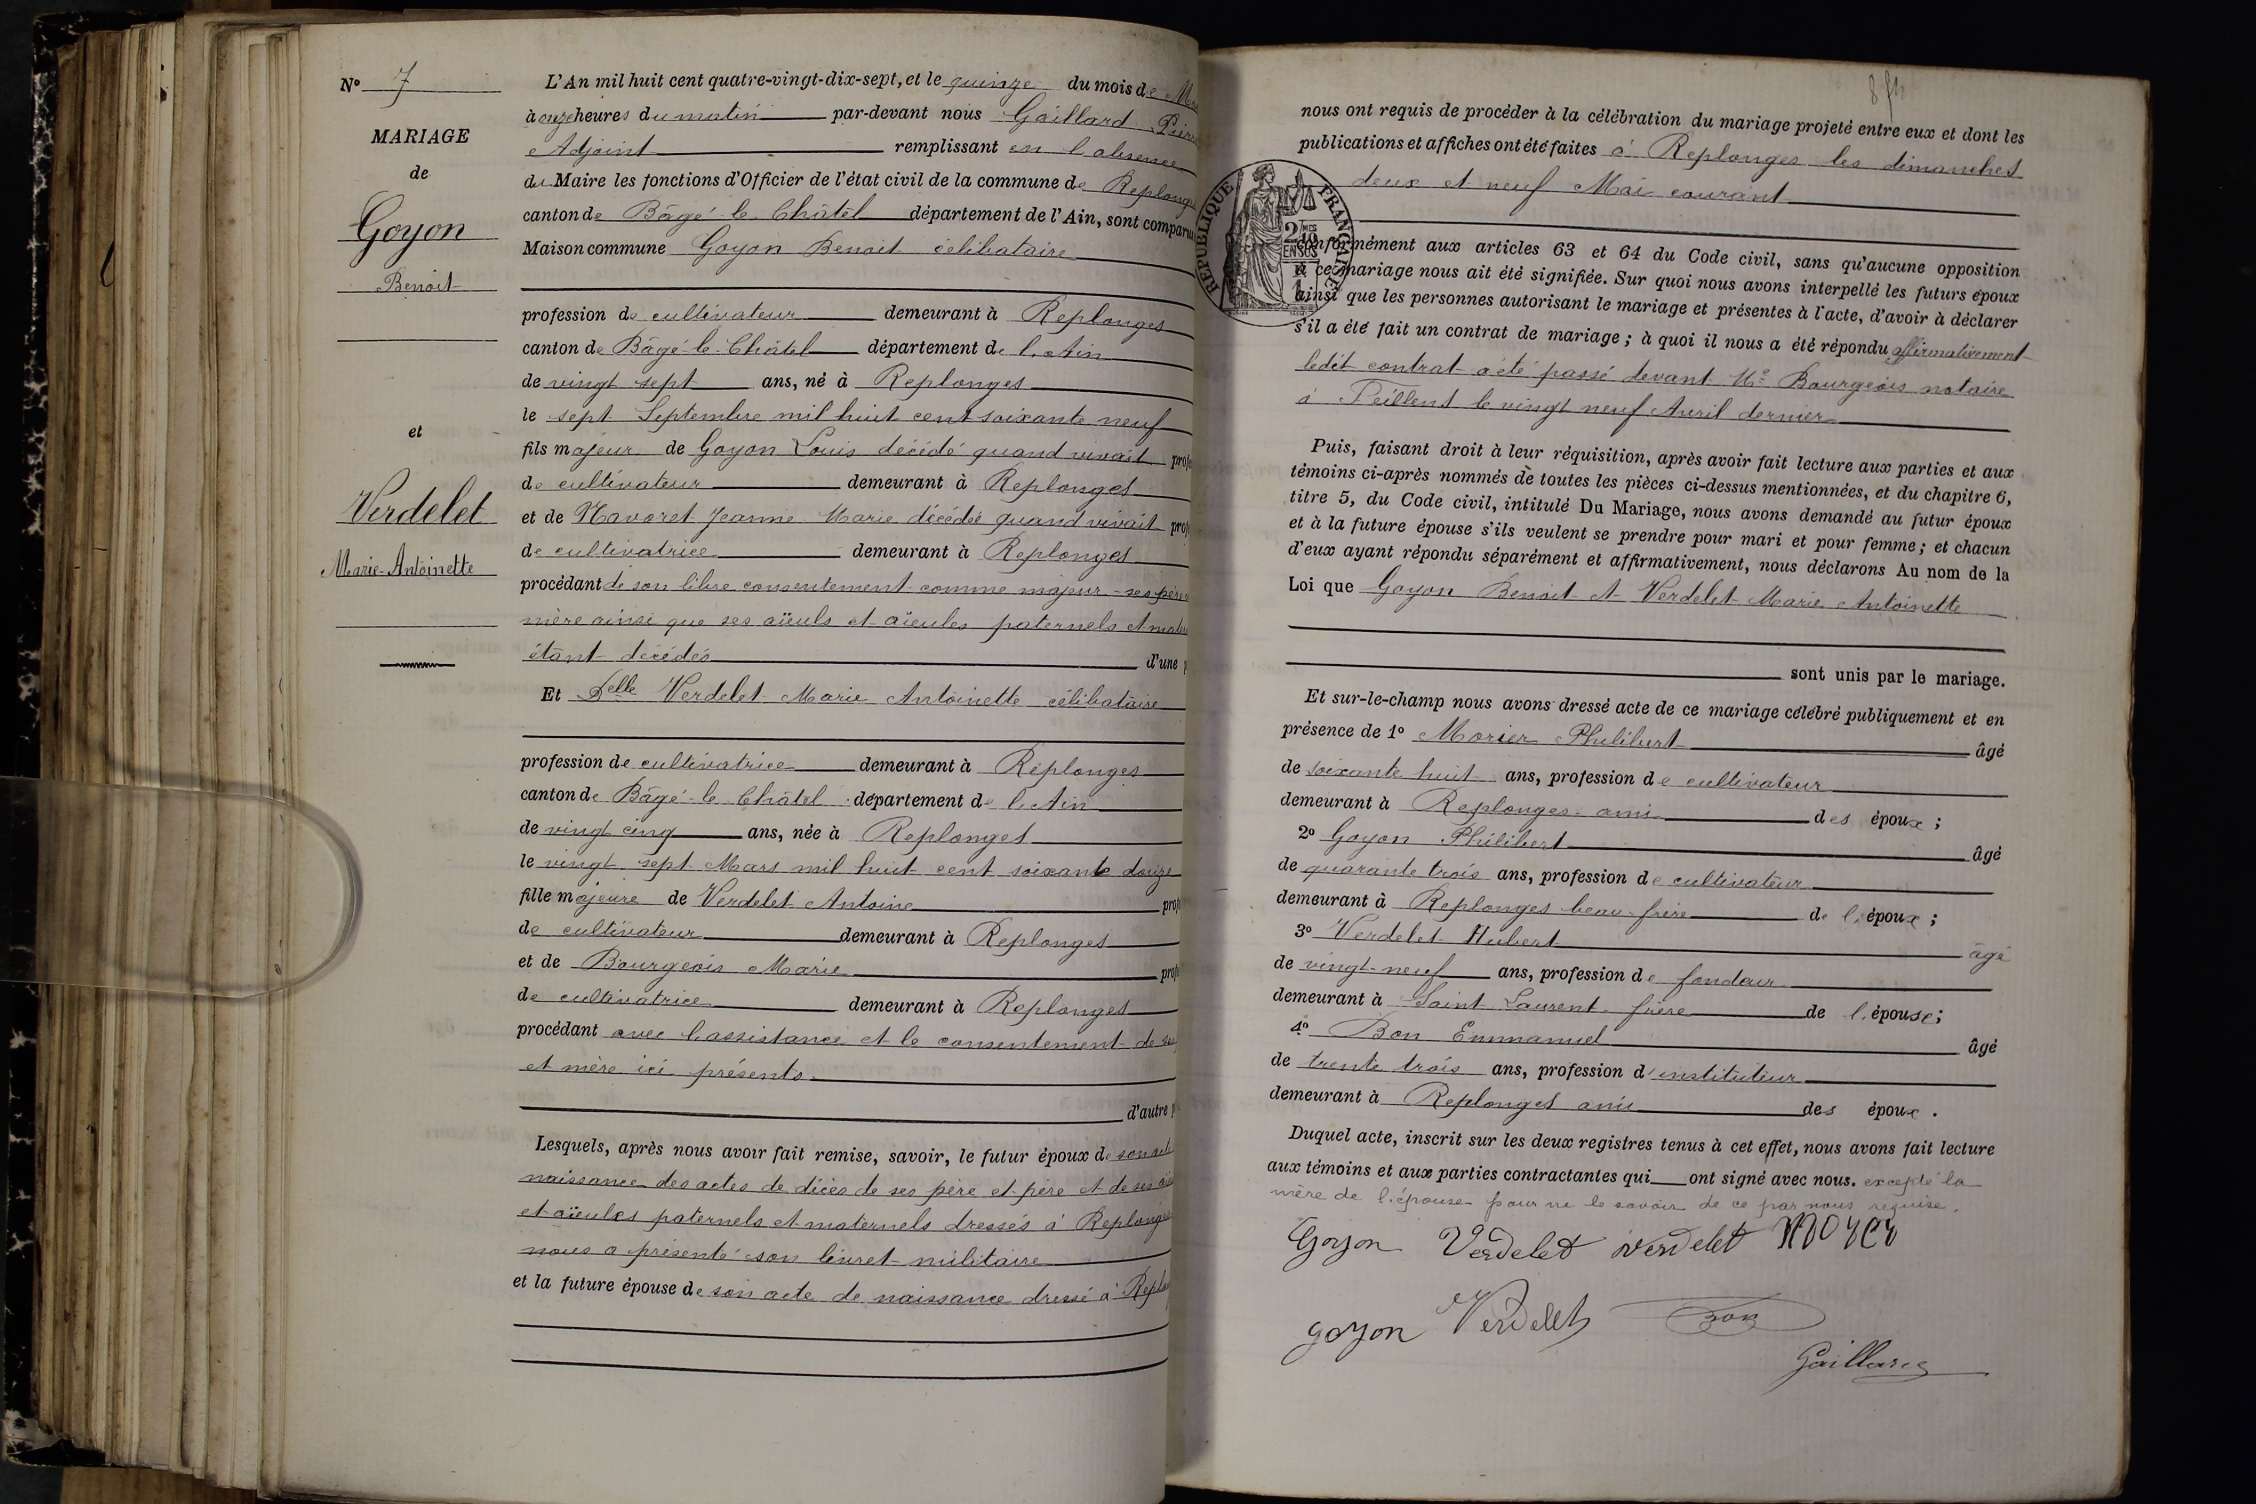 N° 7
MARIAGE
de
Goyon
Benoit
et
Verdelet
Marie-Antoinette
L'An mil huit cent quatre-vingt-dix-sept, et le quinze du mois de
à onze heures du matin par-devant nous Gaillard
Adjoint remplissant en l'absence
du Maire les fonctions d'Officier de l'état civil de la commune de
canton de Bâgé-le-Châtel département de l'Ain, sont
Maison commune Goyon Benoit célibataire
profession de cultivateur demeurant à Replonges
canton de Bâgé-le-Châtel département de l'Ain
de vingt sept ans, né à Replonges
le sept Septembre mil huit cent soixante neuf
fils majeur de Goyon Louis décédé quand vivait
de cultivateur demeurant à Replonges
et de Navoret Jeanne Marie décédée quand vivait
de cultivatrice demeurant à Replonges
procédant de son libre consentement comme majeur ses père
mère ainsi que ses aïeuls et aïeules paternels et
étant décédés d'une
Et Delle Verdelet Marie Antoinette célibataire
profession de cultivatrice demeurant à Replonges
canton de Bâgé-le-Châtel département de l'Ain
de vingt cinq ans, née à Replonges
le vingt sept Mars mil huit cent soixante douze
fille majeure de Verdelet Antoine
de cultivateur demeurant à Replonges
et de Bourgeois Marie
de cultivatrice demeurant à Replonges
procédant avec l'assistance et le consentement de
et mère ici présents
d'autre
Lesquels, après nous avoir fait remise, savoir, le futur époux de son
naissance des actes de décès de ses père et père et de ses
et aïeules paternels et maternels dressés à
nous a présenté son livret militaire
et la future épouse de son acte de naissance dressé à
nous ont requis de procéder à la célébration du mariage projeté entre eux et dont les
publications et affiches ont été faites à Replonges les dimanches
deux et neuf Mai courant
REPUBLIQUE FRANÇAISE
2/10mes EN SUS
conformément aux articles 63 et 64 du Code civil, sans qu'aucune opposition
à ce mariage nous ait été signifiée. Sur quoi nous avons interpellé les futurs époux
ainsi que les personnes autorisant le mariage et présentes à l'acte, d'avoir à déclarer
s'il a été fait un contrat de mariage ; à quoi il nous a été répondu affirmativement
ledit contrat a été passé devant Me Bourgeois notaire
à Feillens le vingt neuf Avril dernier
Puis, faisant droit à leur réquisition, après avoir fait lecture aux parties et aux
témoins ci-après nommés de toutes les pièces ci-dessus mentionnées, et du chapitre 6,
titre 5, du Code civil, intitulé Du Mariage, nous avons demandé au futur époux
et à la future épouse s'ils veulent se prendre pour mari et pour femme ; et chacun
d'eux ayant répondu séparément et affirmativement, nous déclarons Au nom de la
Loi que Goyon Benoit et Verdelet Marie Antoinette
sont unis par le mariage.
Et sur-le-champ nous avons dressé acte de ce mariage célébré publiquement et en
présence de 1° Morier Philibert âgé
de soixante huit ans, profession de cultivateur
demeurant à Replonges ami des époux ;
2° Goyon Philibert âgé
de quarante trois ans, profession de cultivateur
demeurant à Replonges beau-frère de l'époux ;
3° Verdelet Hubert âgé
de vingt-neuf ans, profession de fondeur
demeurant à Saint Laurent frère de l'épouse ;
4° Bon Emmanuel âgé
de trente trois ans, profession d'instituteur
demeurant à Replonges ami des époux .
Duquel acte, inscrit sur les deux registres tenus à cet effet, nous avons fait lecture
aux témoins et aux parties contractantes qui ont signé avec nous. excepté la
mère de l'épouse pour ne le savoir de ce par nous requise.
Goyon Verdelet Verdelet
Goyon Verdelet Bon
Gaillard